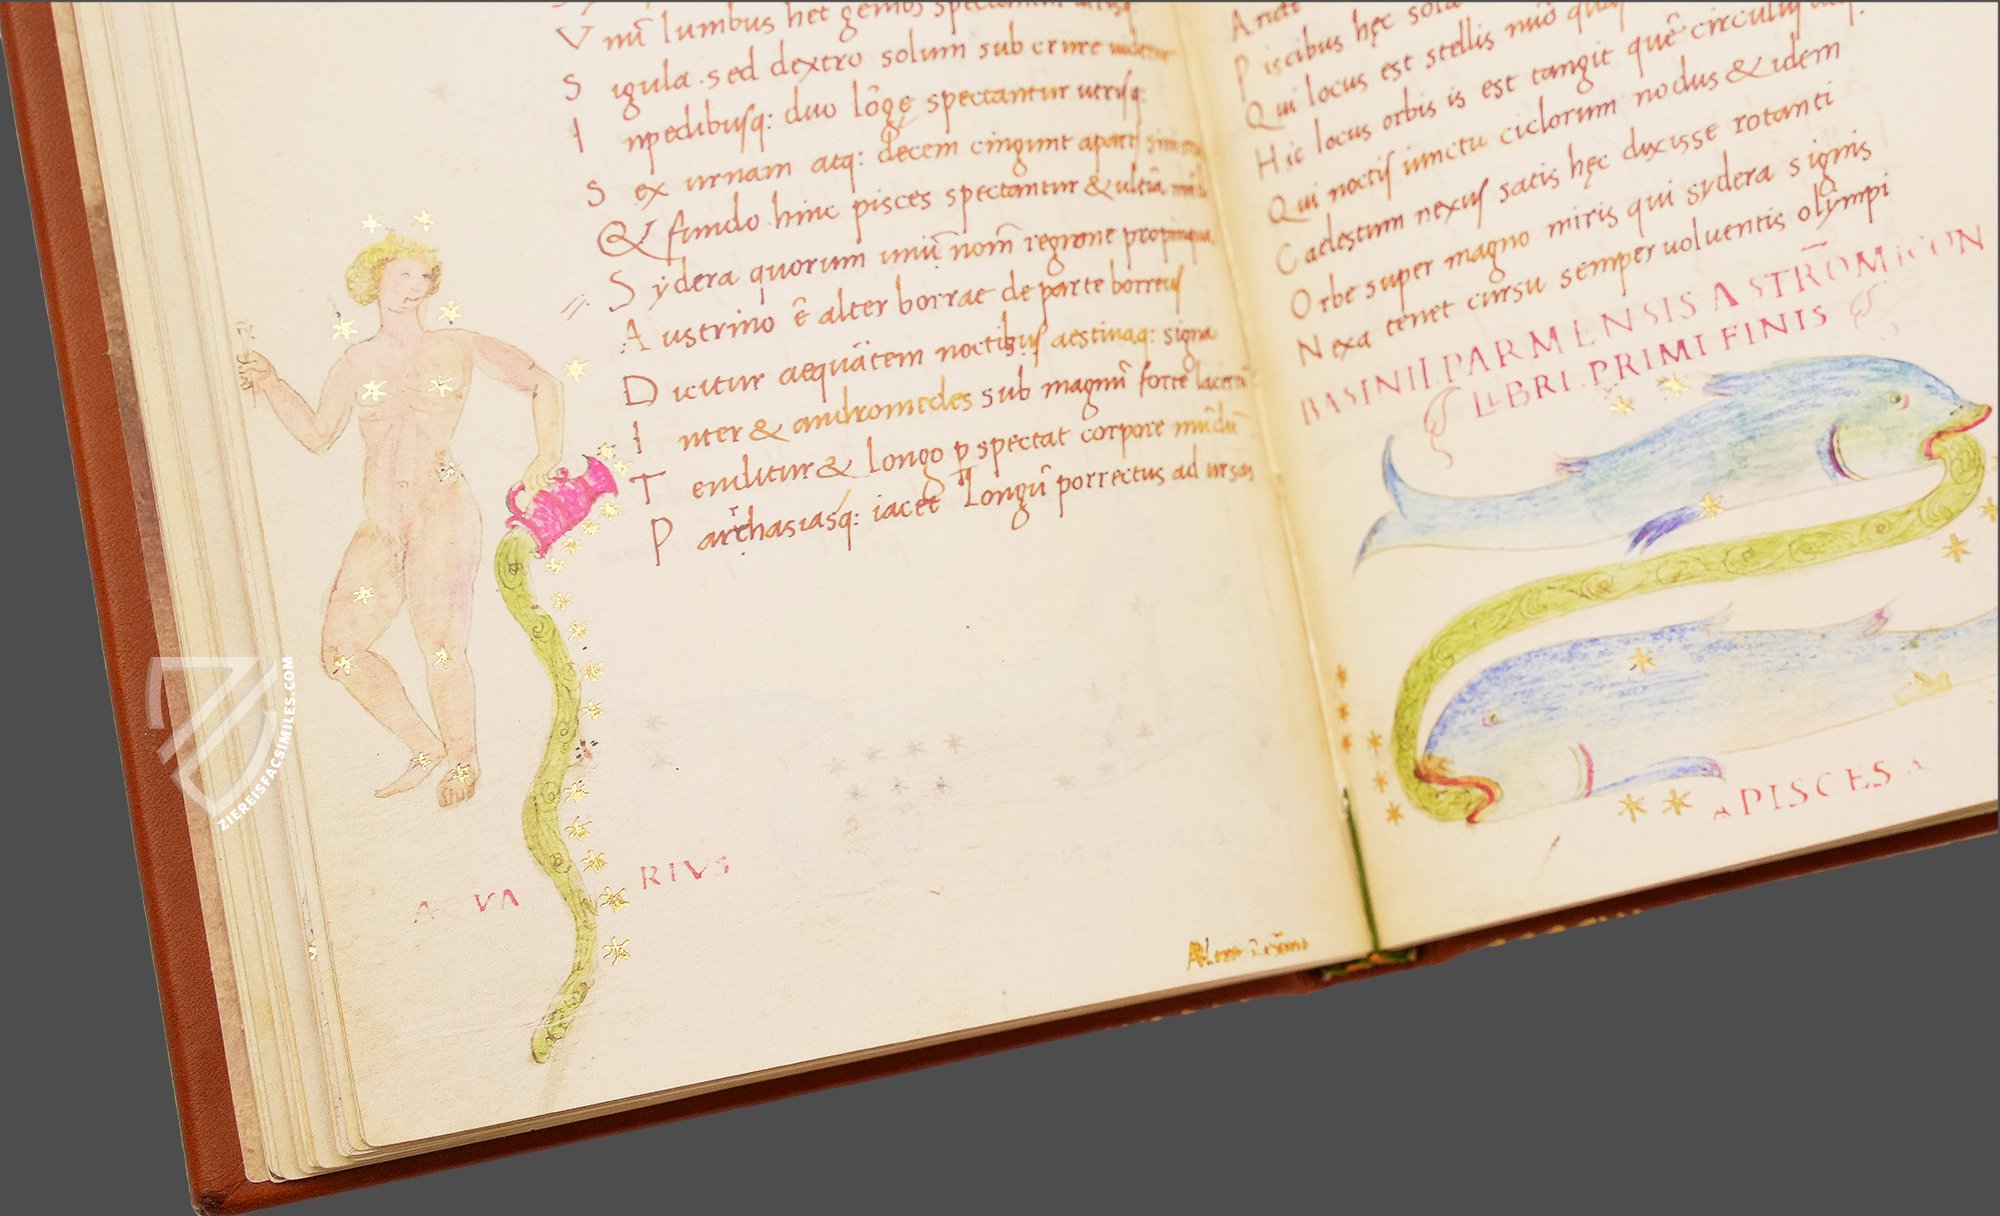 V nũ lumbus het gemos
S igula. sed dextro solum sub crure
I npedibusq: duo lõge spectantur utrisq:
S ex urnam atq: decem cingunt aparte
& fundo hinc pisces spectantur & ultia
S ydera quorum unũ nom̃ regione propinqua
A ustrino ẽ alter borrae de parte borreus
D icitur aequãtem noctibus aestiuaq: signa
I nter & andromedes sub magnũ forte lacertũ
T enditur & longo p spectat corpore mũdũ
P arrhasiasq: iacet Longũ porrectus ad ursas
A VA RIVS
P iscibus hęc sola
Q ui locus est stellis
H ic locus orbis is est tangit quẽ circulus
Q ui noctis iunctu ciclorum nodus & idem
C aelestum nexus satis hęc duxisse rotanti
O rbe super magno miris qui sydera signis
N exa tenet cursu semper uoluentis olympi
BASINII PARMENSIS ASTRÕMICON
LIBRI PRIMI FINIS
PISCES
ZIEREISFACSIMILES.COM